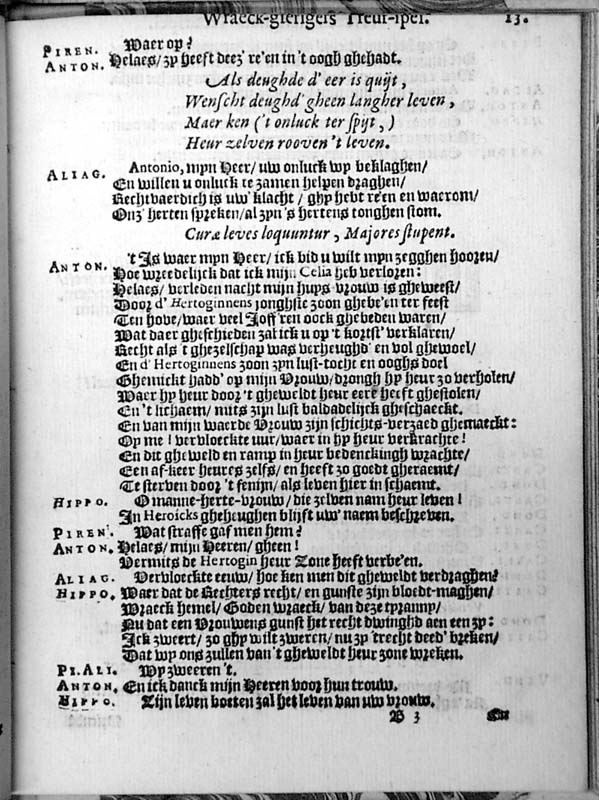 Wraeck-gierigers Treur-spel. 13.
PIREN. Waer op?
ANTON. Helaes/ zy heeft deez' re'en in 't oogh ghehadt.
Als deughde d' eer is quijt,
Wenscht deughd' gheen langher leven,
Maer ken ('t onluck ter spijt,)
Heur zelven rooven 't leven.
ALIAG. Antonio, mijn Heer/ uw onluck wy beklaghen/
En willen u onluck te zamen helpen draghen/
Rechtvaerdich is uw' klacht / ghy hebt re'en en waerom/
Onz' herten spreken/ al zyn 's hertens tonghen stom.
Curæ leves loquuntur, Majores stupent.
ANTON. 't Is waer mijn Heer/ ick bid u wilt mijn zegghen hooren/
Hoe wreedelijck dat ick mijn Celia heb verloren:
Helaes/ verleden nacht mijn huys-vrouw is gheweest/
Door d' Hertoginnens jonghste zoon ghebe'en ter feest
Ten hove/ waer veel Joff'ren oock ghebeden waren/
Wat daer gheschieden zal ick u op 't kortst' verklaren/
Recht als 't ghezelschap was verheughd' en vol ghewoel/
En d' Hertoginnens zoon zyn lust-tocht en ooghs doel
Ghemickt hadd' op mijn Vrouw/ drongh hy heur zo verholen/
Waer hy heur door 't gheweldt heur eere heeft ghestolen/
En 't lichaem/ mits zijn lust baldadelijck gheschaeckt.
En van mijn waerde Vrouw zijn schichts-verzaed ghemaeckt:
Op me! vervloeckte uur/ waer in hy heur verkrachte!
En dit gheweld en ramp in heur bedenckingh wrachte/
Een af-keer heures zelfs/ en heeft zo goedt gheraemt/
Te sterven door 't fenijn/ als leven hier in schaemt.
HIPPO. O manne-herte-vrouw/ die zelven nam heur leven!
In Heroicks gheheughen blijft uw' naem beschreven.
PIREN. Wat straffe gaf men hem?
ANTON. Helaes/ mijn Heeren/ gheen!
Vermits de Hertogin heur Zone heeft verbe'en.
ALIAG. Vervloeckte eeuw/ hoe ken men dit gheweldt verdraghen?
HIPPO. Waer dat de Rechters recht/ en gunste zijn bloedt-maghen/
Wraeck hemel/ Goden wraeck/ van deze tyranny/
Nu dat een Vrouwens gunst het recht dwinghd aen een zy:
Ick zweert/ zo ghy wilt zweren/ nu zy 't recht deed' breken/
Dat wy ons zullen van 't gheweldt heur zone wreken.
PI. ALI. Wy zweeren 't.
ANTON. En ick danck mijn Heeren voor hun trouw.
HIPPO. Zijn leven boeten zal het leven van uw vrouw.
B 3